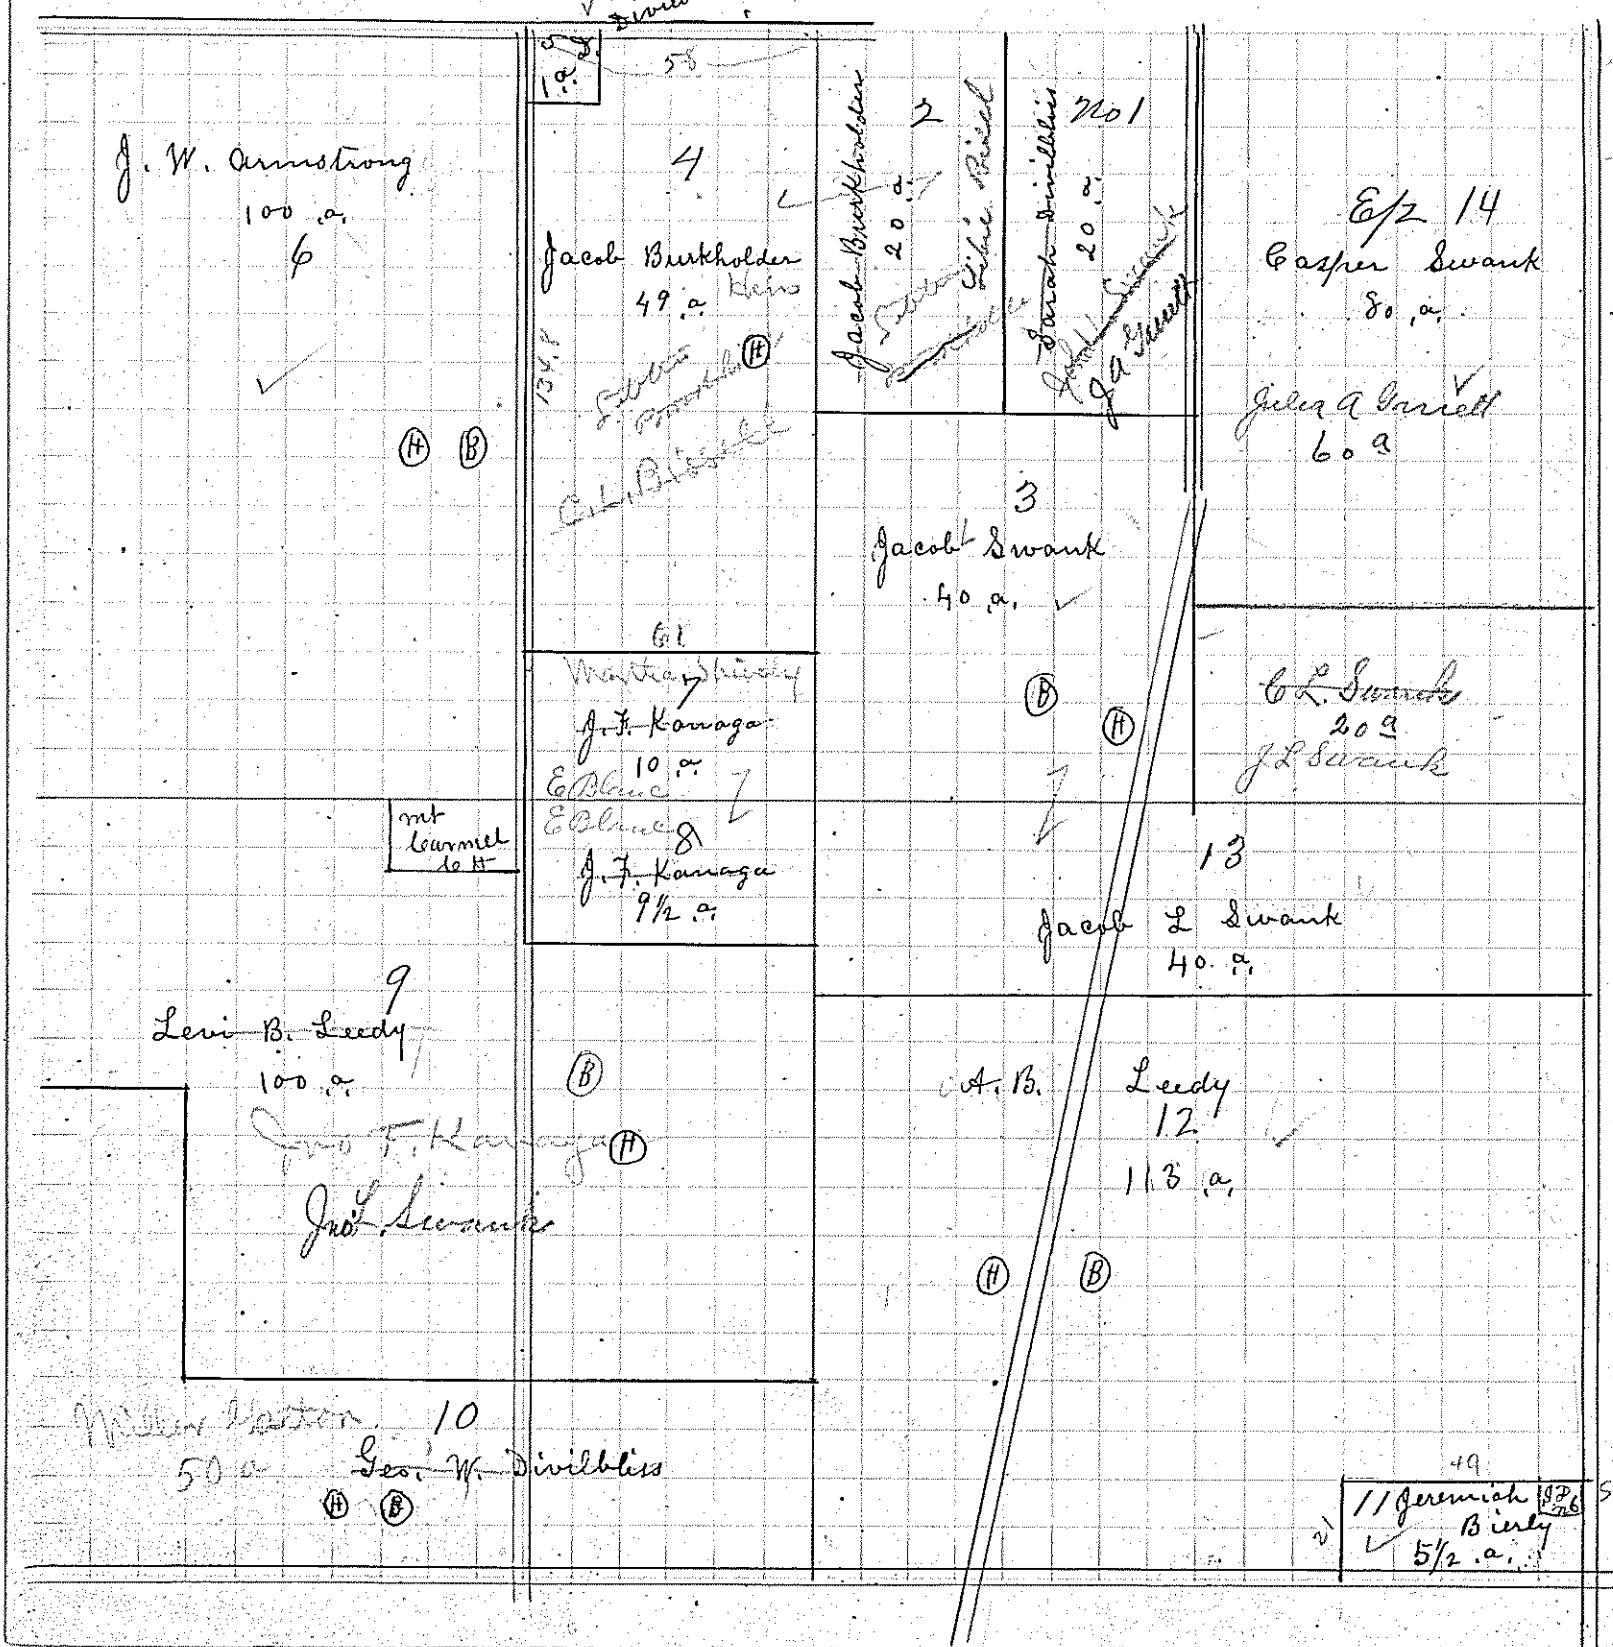 5
1 a.
58
J. W. Armstrong
100 .a.
6
H B
4
Jacob Burkholder
Heirs
49 .a.
134.8
H
C. L. Bissell
61
2
Jacob Burkholder
20 .a.
No 1
Sarah Divilbliss
20 .a.
John Swank
J A Garrett
E/2 14
Casper Swank
80 .a.
Julia A Garrett
60 a
3
Jacob Swank
40 .a.
B
H
C L. Swank
20 a
J L Swank
Martha Shively
7
J. F. Kanaga
10 .a.
E Blanc
E Blanc
8
J. F. Kanaga
9 1/2 .a.
mt
Carmel
C H
13
Jacob L Swank
40 .a.
9
Levi B. Leedy
100 .a.
Jno F. Kanaga
B
H
Jno L. Swank
A. B. Leedy
12
113 .a.
H B
10
50 a
Geo. W. Divilbliss
H B
49
21
11 Jeremiah
Bierly
5 1/2 .a.